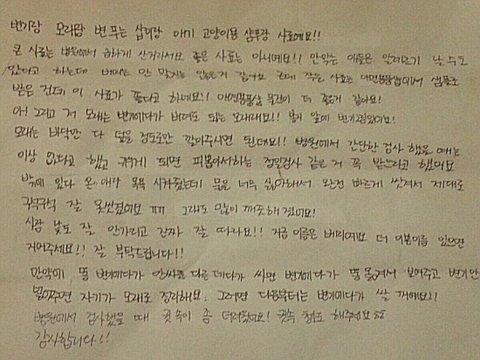 변기랑 모래랑 변 푸는 삽이랑 아기 고양이용 샴푸랑 사료예요!!
큰 사료는 병원에서 급하게 산거라서요 좋은 사료는 아니예요!! 안맞는 애들은 알레르기 날 수도
있다고 하는데 베리는 안 맞지는 않는거 같아요 근데 작은 사료는 애견용품샵에서 샘플로
받은 건데 이 사료가 좋다고 하네요!! 애견용품샵 물건이 더 좋은거 같아요!
아! 그리고 거 모래는 변기에다가 버려도 되는 모래래요!!
모래는 바닥만 다 덮을 정도로만 깔아주시면 된대요!! 병원에서 간단한 검사 했을 때는
이상 없다고 했고 크게 되면 피뽑아서하는 정밀검사 같은 거 꼭 받으라고 했어요
밖에 있다 온 애라 목욕 시켰는데 물을 너무 싫어해서 완전 빠르게 씻겨서 제대로
구석구석 잘 못씻겼어요 ㅠㅠ 그래도 많이 깨끗해졌어요!
사람 낯도 잘 안가리고 진짜 잘 따라요!! 지금 이름은 베리예요 더 이쁜이름 있으면
지어주세요!! 잘 부탁드립니다!!
만약에 똥 변기에다가 안싸고 다른 데다가 싸면 변기에다가 똥 옮겨서 보여주고 변기안
넣어주면 자기가 모래로 정리해요 그러면 다음부터는 변기에다가 쌀 거예요!!
병원에서 검사했을 때 귓속이 좀 더러웠어요! 귓속 청소 해주세요
감사합니다!!